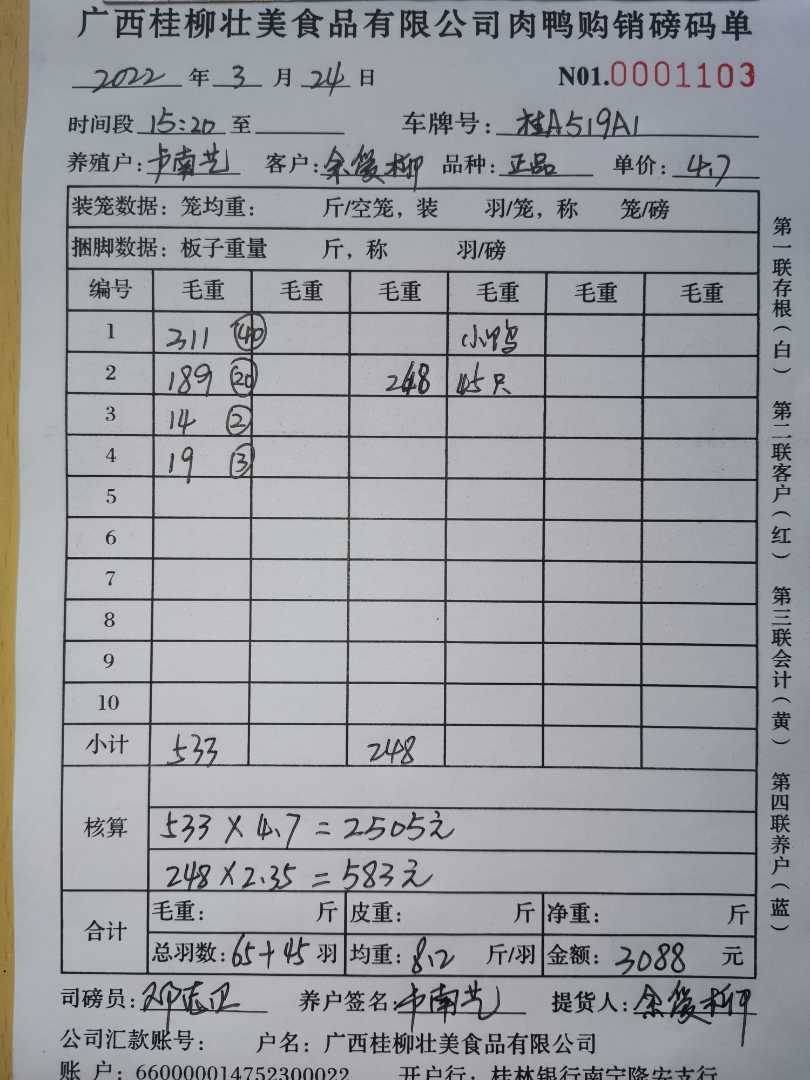 广西桂柳壮美食品有限公司肉鸭购销磅码单
2022 年 3 月 24 日 N01.0001103
时间段 15:20 至 车牌号: 桂A519A1
养殖户: 卜南艺 客户: 余俊柳 品种: 正品 单价: 4.7
装笼数据: 笼均重: 斤/空笼, 装 羽/笼, 称 笼/磅
捆脚数据: 板子重量 斤, 称 羽/磅
编号 毛重 毛重 毛重 毛重 毛重 毛重
1 311 40 小鸭
2 189 20 248 45只
3 14 2
4 19 3
5
6
7
8
9
10
小计 533 248
核算
533 × 4.7 = 2505元
248 × 2.35 = 583元
合计
毛重: 斤 皮重: 斤 净重: 斤
总羽数: 65+45 羽 均重: 8.2 斤/羽 金额: 3088 元
司磅员: 邓志卫 养户签名: 卜南艺 提货人: 余俊柳
公司汇款账号: 户名: 广西桂柳壮美食品有限公司
账 户: 660000014752300022 开户行: 桂林银行南宁隆安支行
第一联存根(白) 第二联客户(红) 第三联会计(黄) 第四联养户(蓝)